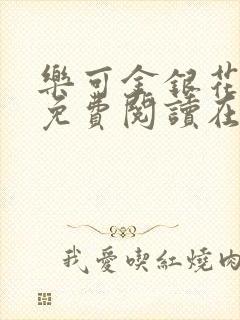 樂可金銀花
免費閱讀在
我愛喫紅燒肉